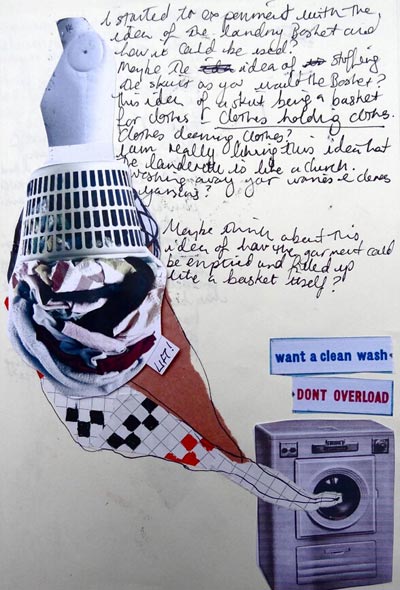 I started to experiment with the
idea of the landry Basket and
how it could be used?
Maybe the idea of stuffing
the skirt as you would the Basket?
This idea of a skirt being a basket
for clothes - clothes holding clothes.
clothes cleaning clothes?
I am really liking this idea that
the landerette is like a church.
washing away your worries & cleansing
yourself?
Maybe think about this
idea of how the garment could
be emptied and filled up
like a basket itself?
LIFT!
want a clean wash
DONT OVERLOAD